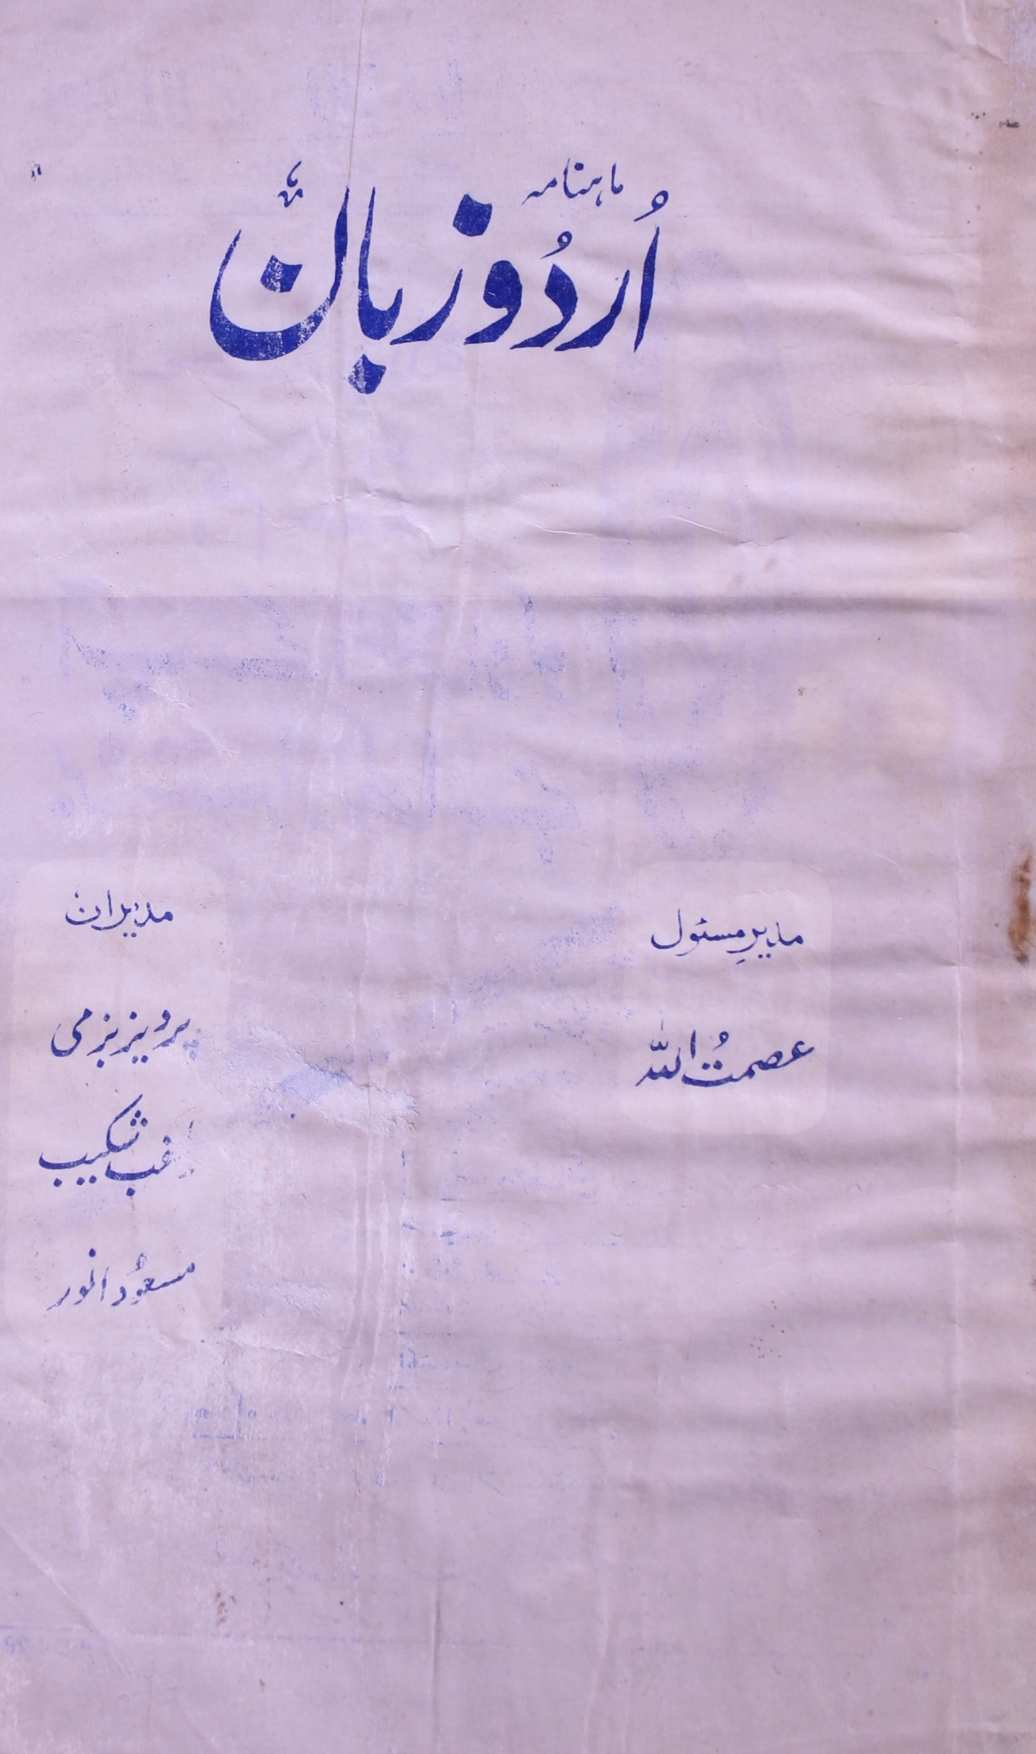 ماہنامہ
اُردُو زبان
مدیرِ مسئول
عصمتُ اللہ
مدیران
پرویز بزمی
راغب شکیب
مسعُود انور